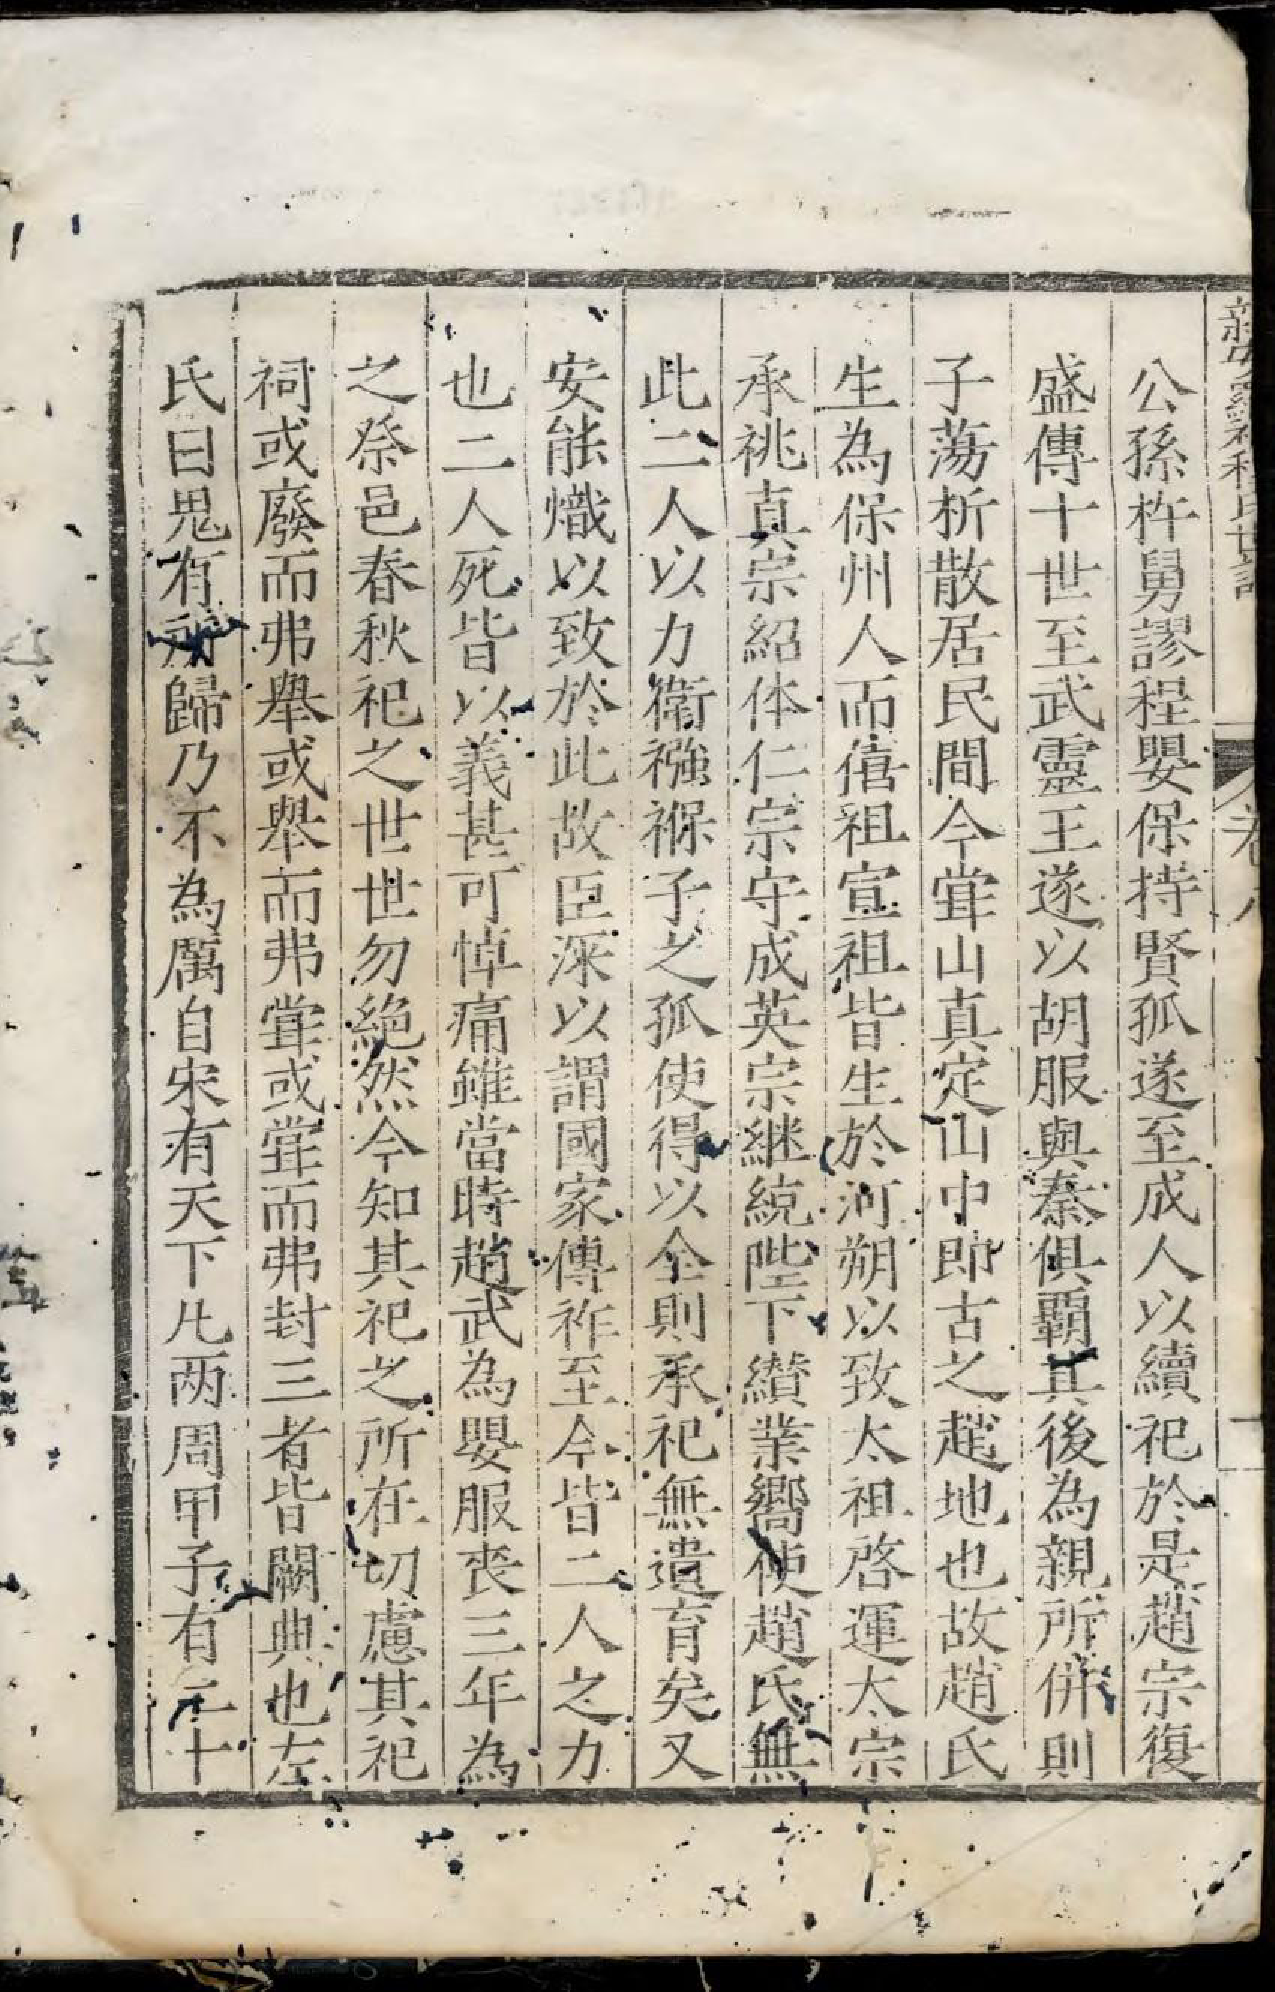 公孫杵舅謬程嬰保持賢孤遂至成人以續祀於是趙宗復
盛傳十世至武靈王遂以胡服與秦俱霸其後為親所併則
子蕩析散居民間今甞山真定山中即古之趙地也故趙氏
生為保州人而僖祖宣祖皆生於河朔以致太祖啓運太宗
承祧真宗紹体仁宗守成英宗継統陛下纘業嚮使趙氏無
此二人以力衛襁褓子之孤使得以全則承祀無遺育矣又
安能熾以致於此故臣深以謂國家傳祚至今皆二人之力
也二人死皆以義甚可悼痛雖當時趙武為嬰服喪三年為
之祭邑春秋祀之世世勿絕然今知其祀之所在切慮其祀
祠或廢而弗舉或舉而弗甞或甞而弗封三者皆闕典也左
氏曰鬼有所歸乃不為厲自宋有天下凡两周甲子有二十